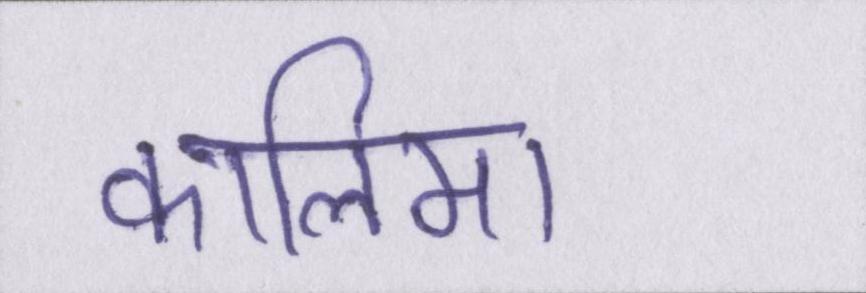 कालिमा